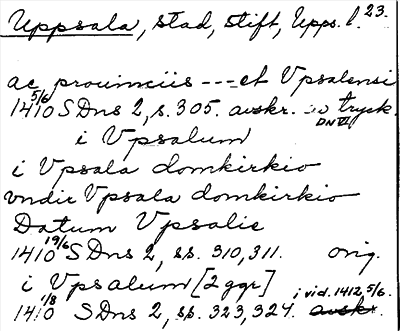 Uppsala, stad, stift, Upps. l. 23.
ac prouinciis --- et Vpsalensi
1410 5/6 SDns 2, s. 305. avskr. tryck.
DN VI
i Vpsalum
i Vpsala domkirkio
vndir Vpsala domkirkio
Datum Vpsalie
1410 19/6 SDns 2, ss. 310, 311. orig.
i Vpsalum [2 ggr]
i vid. 1412 5/6.
1410 1/8 SDns 2, ss. 323, 324. avskr.